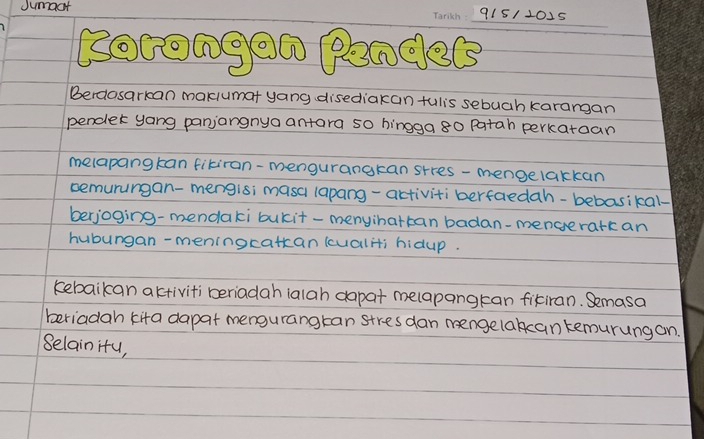 Jumaat
Tarikh: 9/5/2025
Karangan Pendek
Berdasarkan maklumat yang disediakan tulis sebuah karangan
pendek yang panjangnya antara 50 hingga 80 Patah perkataan
melapangkan fikiran - mengurangkan stres - mengelakkan
kemurungan - mengisi masa lapang - aktiviti berfaedah - bebasikal-
berjoging - mendaki bukit - menyihatkan badan - mengeratkan
hubungan - meningkatkan kualiti hidup.
Kebaikan aktiviti beriadah ialah dapat melapangkan fikiran. Semasa
beriadah kita dapat mengurangkan stres dan mengelakkan kemurungan.
Selain itu,